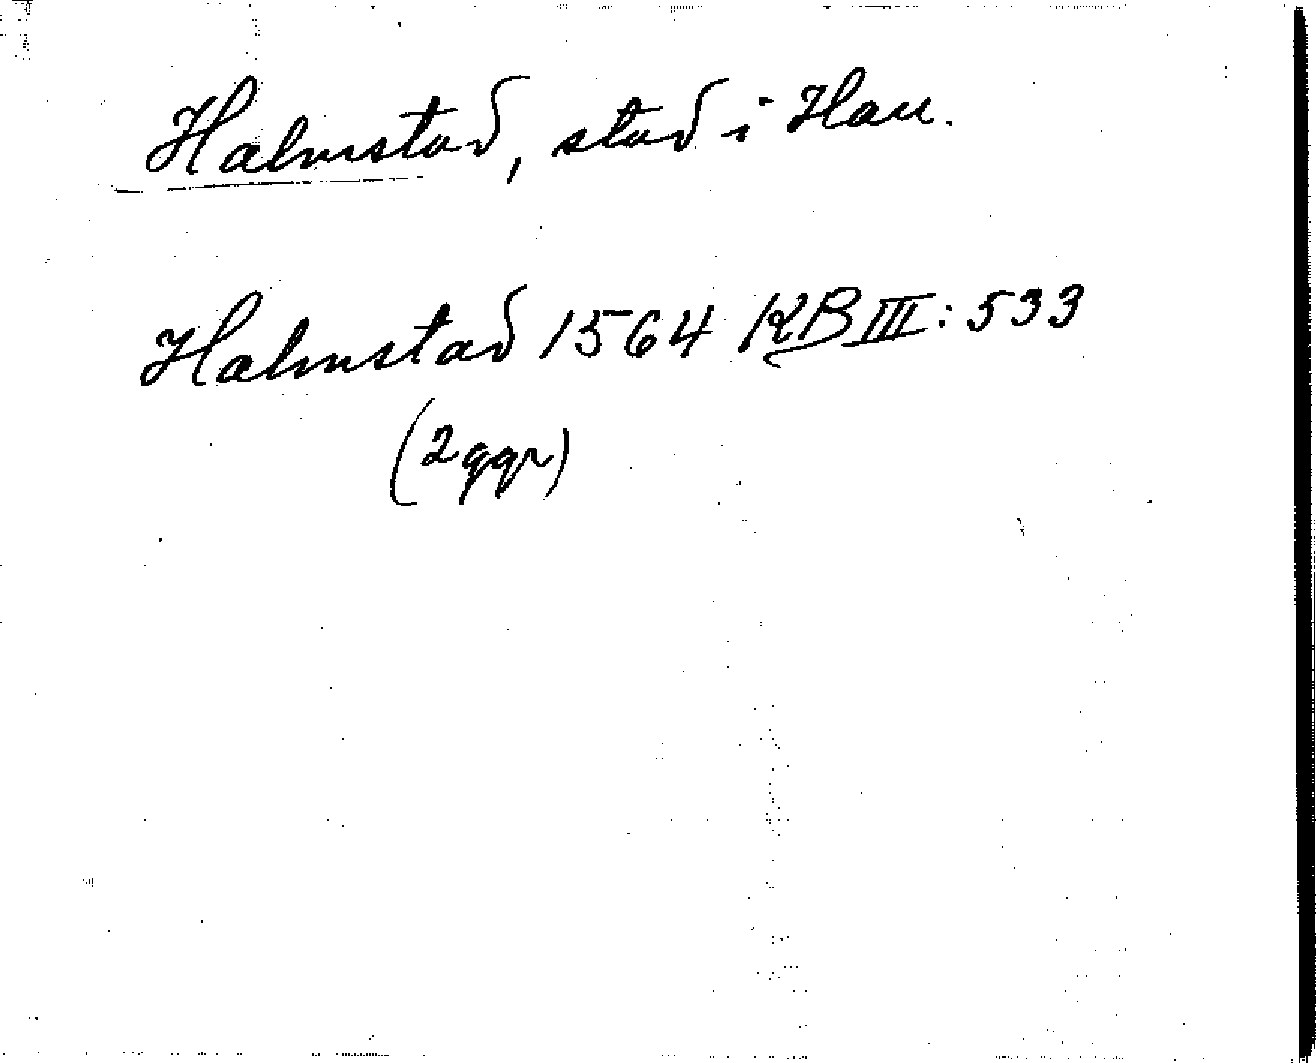 Halmstad, stad i Hall.
Halmstad 1564 KB III: 533
(2 ggr)